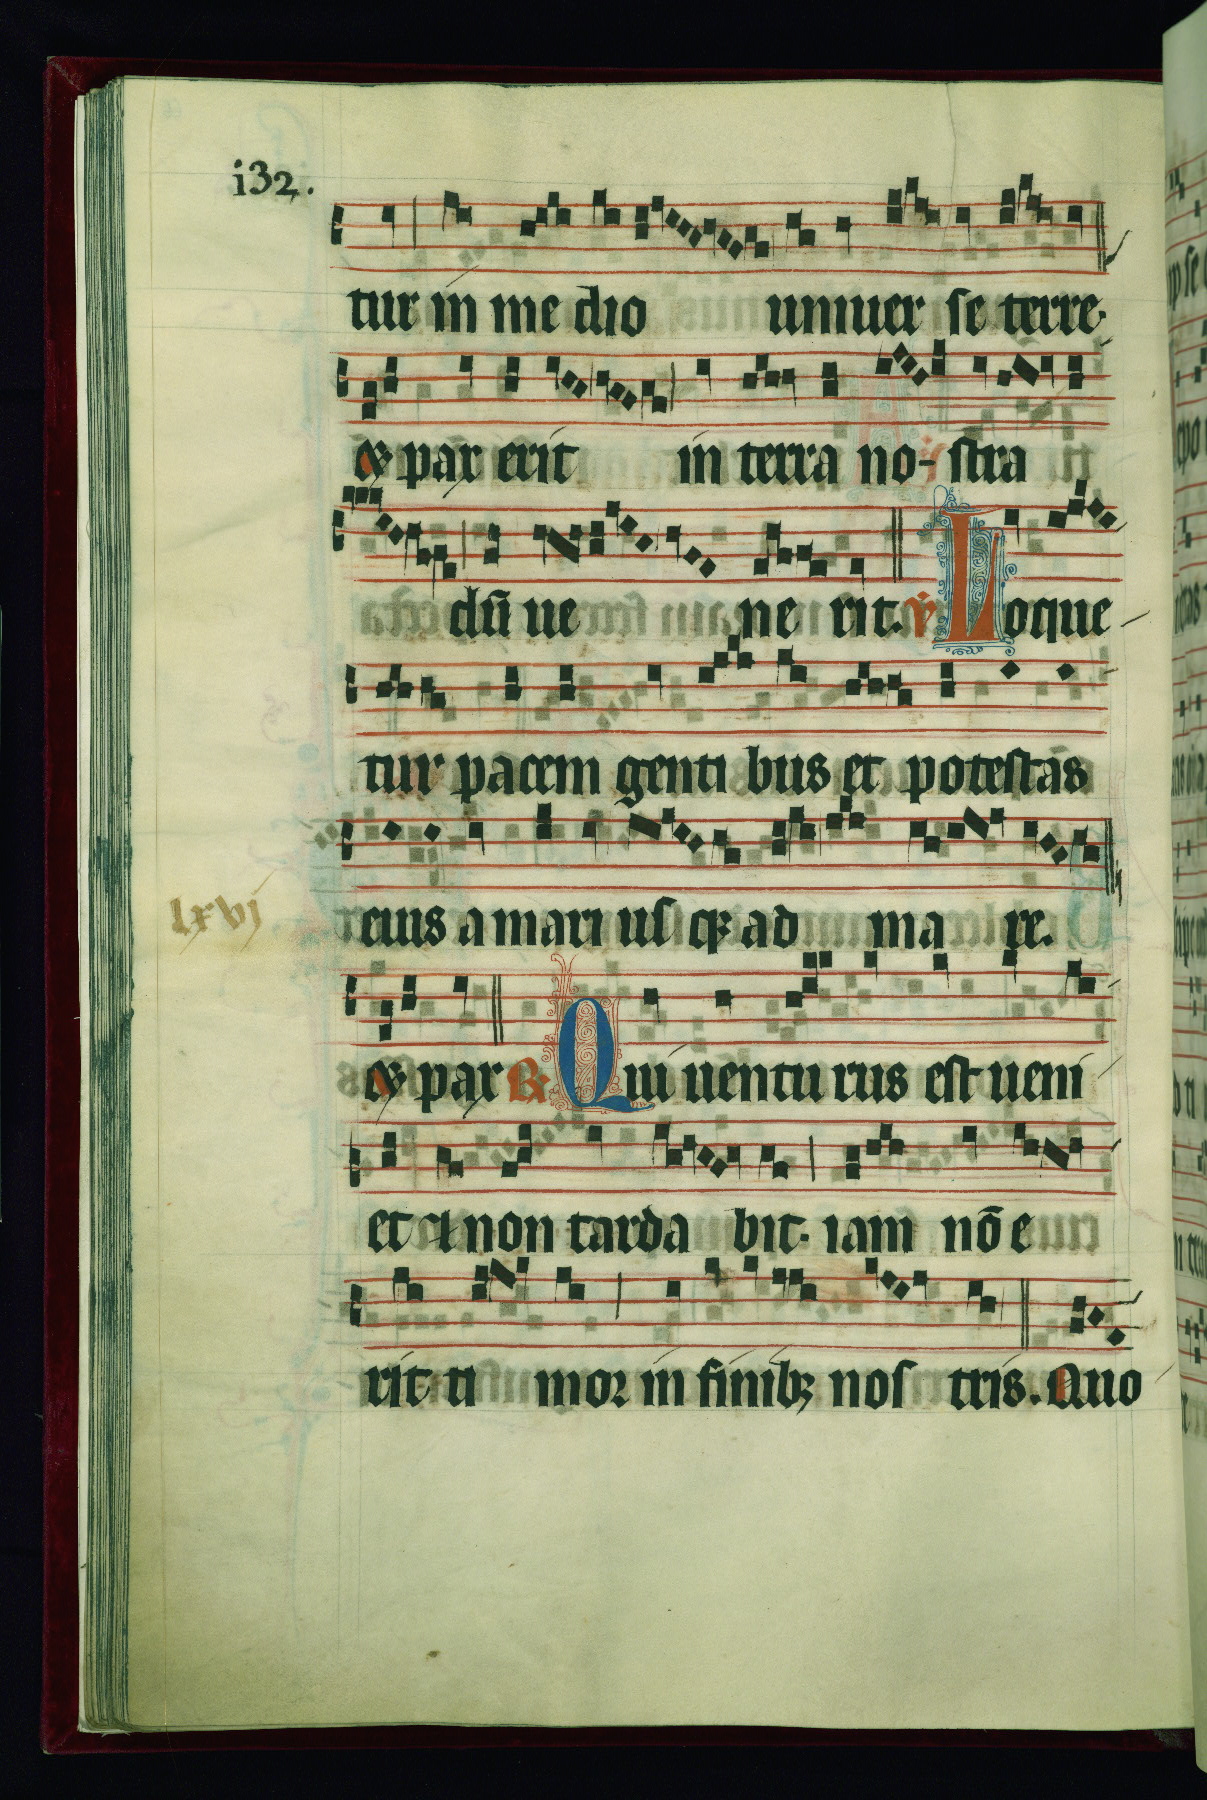 i32.
tur in me dio uniuer se terre.
& pax erit in terra no- stra
dū ue ne rit. ℣ Loque
tur pacem genti bus et potestas
lxvi
eius a mari us qȝ ad ma re.
& pax ℟ Qui uentu rus est ueni
et & non tarda bit. iam nō e
rit ti mor in finibȝ nos tris. Quo